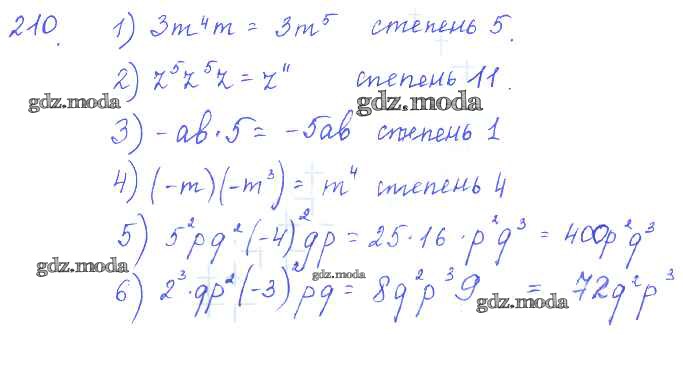 210. 1) 3m⁴m = 3m⁵ степень 5.
2) z⁵z⁵z = z¹¹ степень 11.
gdz.moda gdz.moda
3) -ab·5 = -5ab степень 1
4) (-m)(-m³) = m⁴ степень 4
5) 5²pq²(-4)²qp = 25·16·p²q³ = 400p²q³
gdz.moda gdz.moda
6) 2³·qp²(-3)²pq = 8q²p³9 = 72q²p³
gdz.moda